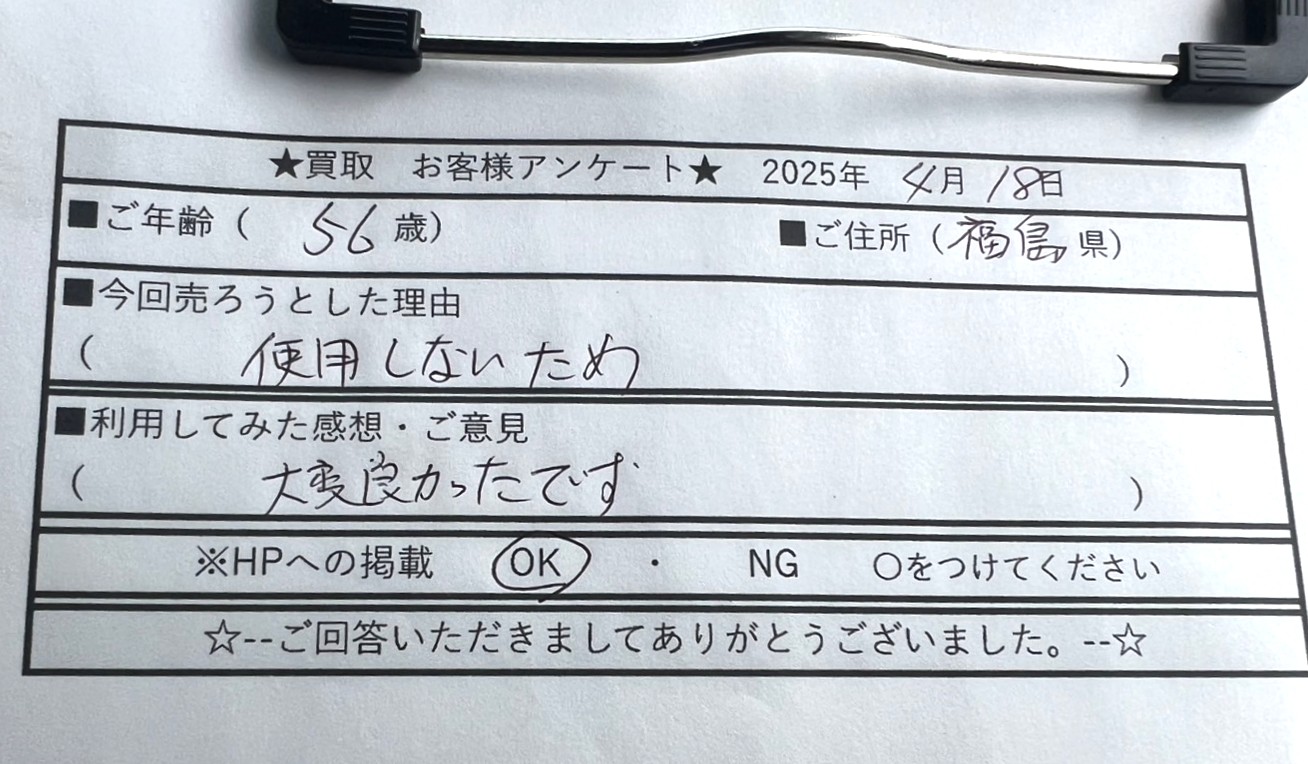 ★買取　お客様アンケート★　2025年　4月　18日
■ご年齢（　56歳）　■ご住所（福島県）
■今回売ろうとした理由
（　使用しないため　）
■利用してみた感想・ご意見
（　大変良かったです　）
※HPへの掲載　OK　・　NG　○をつけてください
☆--ご回答いただきましてありがとうございました。--☆